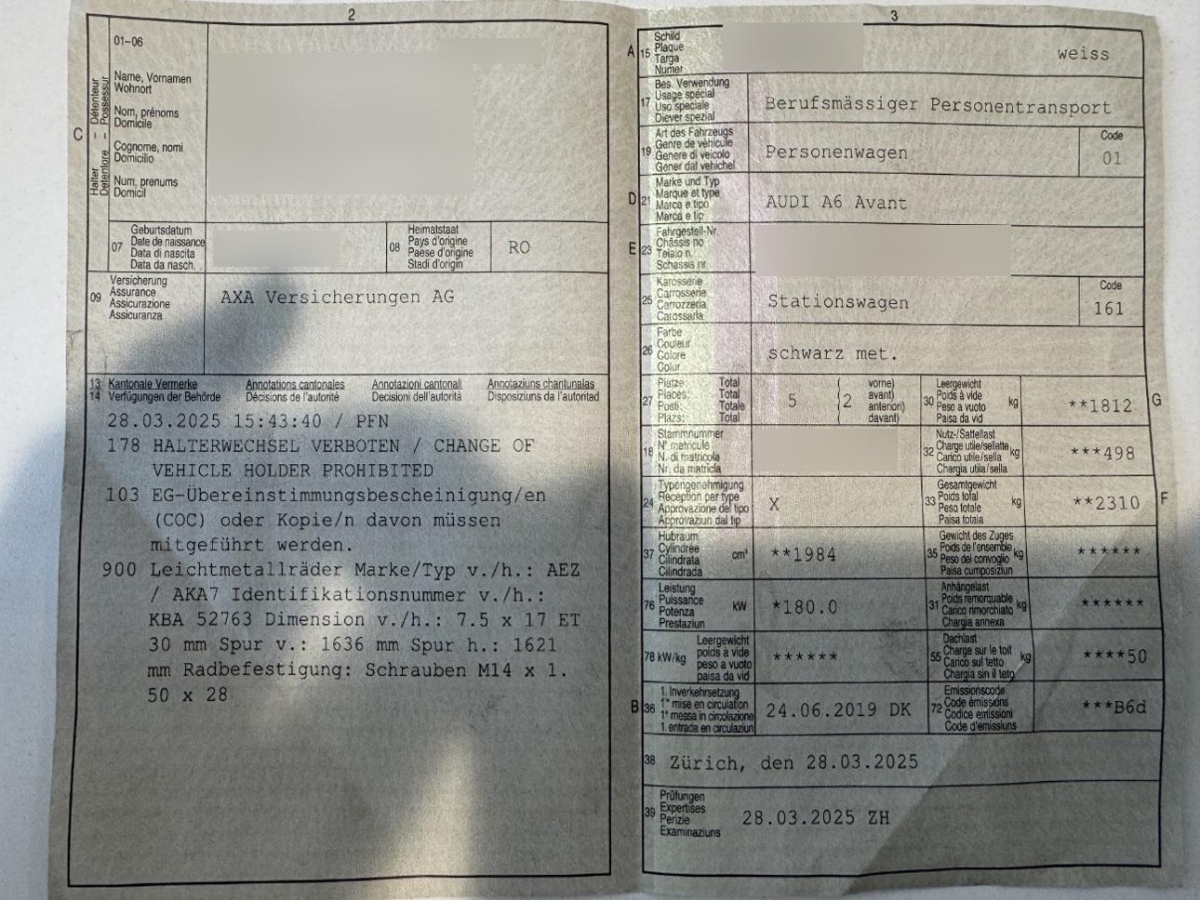 2
01-06
Halter - Détenteur
Detentore - Possessur
C
Name, Vornamen
Wohnort
Nom, prénoms
Domicile
Cognome, nomi
Domicilio
Num, prenums
Domicil
07
Geburtsdatum
Date de naissance
Data di nascita
Data da nasch.
08
Heimatstaat
Pays d'origine
Paese d'origine
Stadi d'origin
RO
09
Versicherung
Assurance
Assicurazione
Assicuranza
AXA Versicherungen AG
13 Kantonale Vermerke Annotations cantonales Annotazioni cantonali Annotaziuns chantunalas
14 Verfügungen der Behörde Décisions de l'autorité Decisioni dell'autorità Disposiziuns da l'autoritad
28.03.2025 15:43:40 / PFN
178 HALTERWECHSEL VERBOTEN / CHANGE OF
VEHICLE HOLDER PROHIBITED
103 EG-Übereinstimmungsbescheinigung/en
(COC) oder Kopie/n davon müssen
mitgeführt werden.
900 Leichtmetallräder Marke/Typ v./h.: AEZ
/ AKA7 Identifikationsnummer v./h.:
KBA 52763 Dimension v./h.: 7.5 x 17 ET
30 mm Spur v.: 1636 mm Spur h.: 1621
mm Radbefestigung: Schrauben M14 x 1.
50 x 28
3
A 15
Schild
Plaque
Targa
Numer
weiss
17
Bes. Verwendung
Usage spécial
Uso speciale
Diever spezial
Berufsmässiger Personentransport
19
Art des Fahrzeugs
Genre de véhicule
Genere di veicolo
Gener dal vehichel
Personenwagen
Code
01
D 21
Marke und Typ
Marque et type
Marca e tipo
Marca e tip
AUDI A6 Avant
E 23
Fahrgestell-Nr.
Châssis no
Telaio n.
Schassis nr.
25
Karosserie
Carrosserie
Carrozzeria
Carossaria
Stationswagen
Code
161
26
Farbe
Couleur
Colore
Colur
schwarz met.
27
Plätze: Total
Places: Total
Posti: Totale
Plazs: Total
5
(2
vorne)
avant)
anteriori)
davant)
30
Leergewicht
Poids à vide
Peso a vuoto
Paisa da vid
kg
**1812
G
18
Stammnummer
N° matricule
N. di matricola
Nr. da matricla
32
Nutz-/Sattellast
Charge utile/sellette
Carico utile/sella
Chargia utila/sella
kg
***498
24
Typengenehmigung
Réception par type
Approvazione del tipo
Approvaziun dal tip
X
33
Gesamtgewicht
Poids total
Peso totale
Paisa totala
kg
**2310
F
37
Hubraum
Cylindrée
Cilindrata
Cilindrada
cm³
**1984
35
Gewicht des Zuges
Poids de l'ensemble
Peso del convoglio
Paisa cumposiziun
kg
******
76
Leistung
Puissance
Potenza
Prestaziun
kW
*180.0
31
Anhängelast
Poids remorquable
Carico rimorchiato
Chargia annexa
kg
******
78 kW/kg
Leergewicht
poids à vide
peso a vuoto
paisa da vid
******
55
Dachlast
Charge sur le toit
Carico sul tetto
Chargia sin il tetg
kg
****50
B 36
1. Inverkehrsetzung
1re mise en circulation
1a messa in circolazione
1. entrada en circulaziun
24.06.2019 DK
72
Emissionscode
Code émissions
Codice emissioni
Code d'emissiuns
***B6d
38 Zürich, den 28.03.2025
39
Prüfungen
Expertises
Perizie
Examinaziuns
28.03.2025 ZH